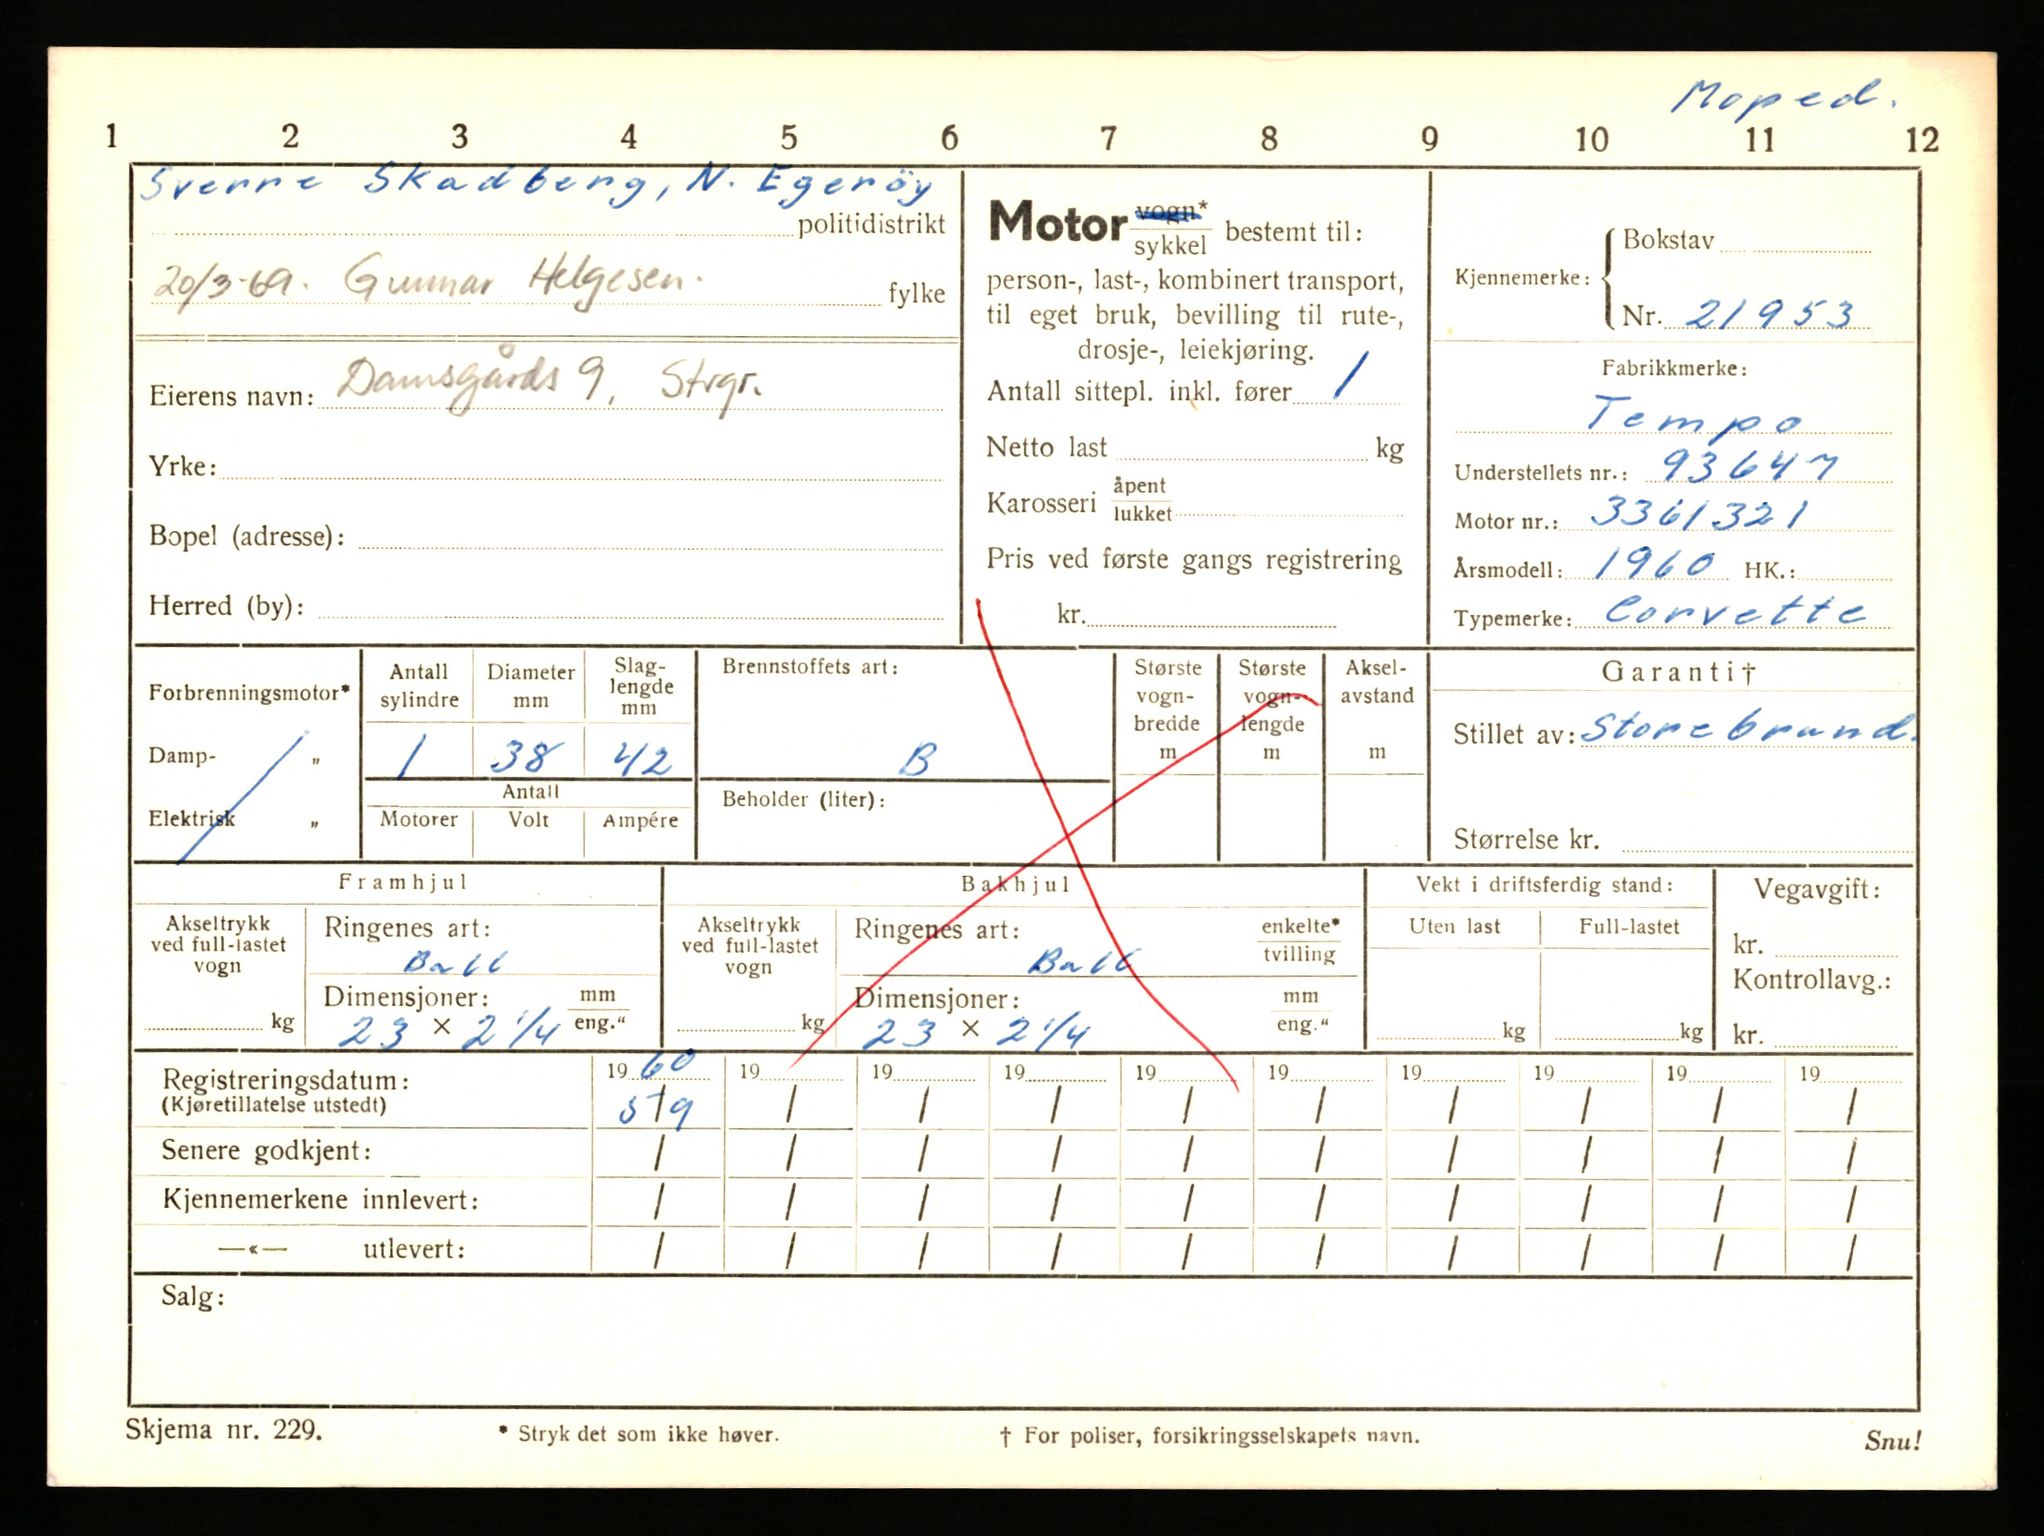 Moped.
1 2 3 4 5 6 7 8 9 10 11 12
Sverre Skadberg, N. Egerøy
politidistrikt
20/3-69. Gunnar Helgesen.
fylke
Eierens navn: Damsgårds 9, Strgr.
Yrke:
Bopel (adresse):
Herred (by):
Motor vogn* sykkel bestemt til:
person-, last-, kombinert transport,
til eget bruk, bevilling til rute-,
drosje-, leiekjøring.
Antall sittepl. inkl. fører 1
Netto last kg
Karosseri åpent lukket
Pris ved første gangs registrering
kr.
Kjennemerke: Bokstav
Nr. 21953
Fabrikkmerke:
Tempo
Understellets nr.: 93647
Motor nr.: 3361321
Årsmodell: 1960 HK.:
Typemerke: Corvette
Forbrenningsmotor*
Damp- „
Elektrisk „
Antall sylindre
Diameter mm
Slag-
lengde
mm
1 38 42
Antall
Motorer Volt Ampére
Brennstoffets art:
B
Beholder (liter):
Største
vogn-
bredde
m
Største
vogn-
lengde
m
Aksel-
avstand
m
Garanti†
Stillet av: Storebrand.
Størrelse kr.
Framhjul
Akseltrykk
ved full-lastet
vogn
kg
Ringenes art:
Ball
Dimensjoner: mm
23 × 2 1/4 eng."
Bakhjul
Akseltrykk
ved full-lastet
vogn
kg
Ringenes art: enkelte*
Ball tvilling
Dimensjoner: mm
23 × 2 1/4 eng."
Vekt i driftsferdig stand:
Uten last Full-lastet
kg kg
Vegavgift:
kr.
Kontrollavg.:
kr.
Registreringsdatum: 1960 19 19 19 19 19 19 19 19 19
(Kjøretillatelse utstedt) 5/9 / / / / / / / / /
Senere godkjent: / / / / / / / / / /
Kjennemerkene innlevert: / / / / / / / / / /
—«— utlevert: / / / / / / / / / /
Salg:
Skjema nr. 229. * Stryk det som ikke høver. † For poliser, forsikringsselskapets navn. Snu!